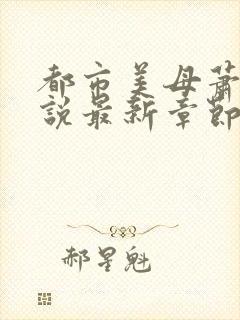 都市美母蕭
說最新章節
郝星魁